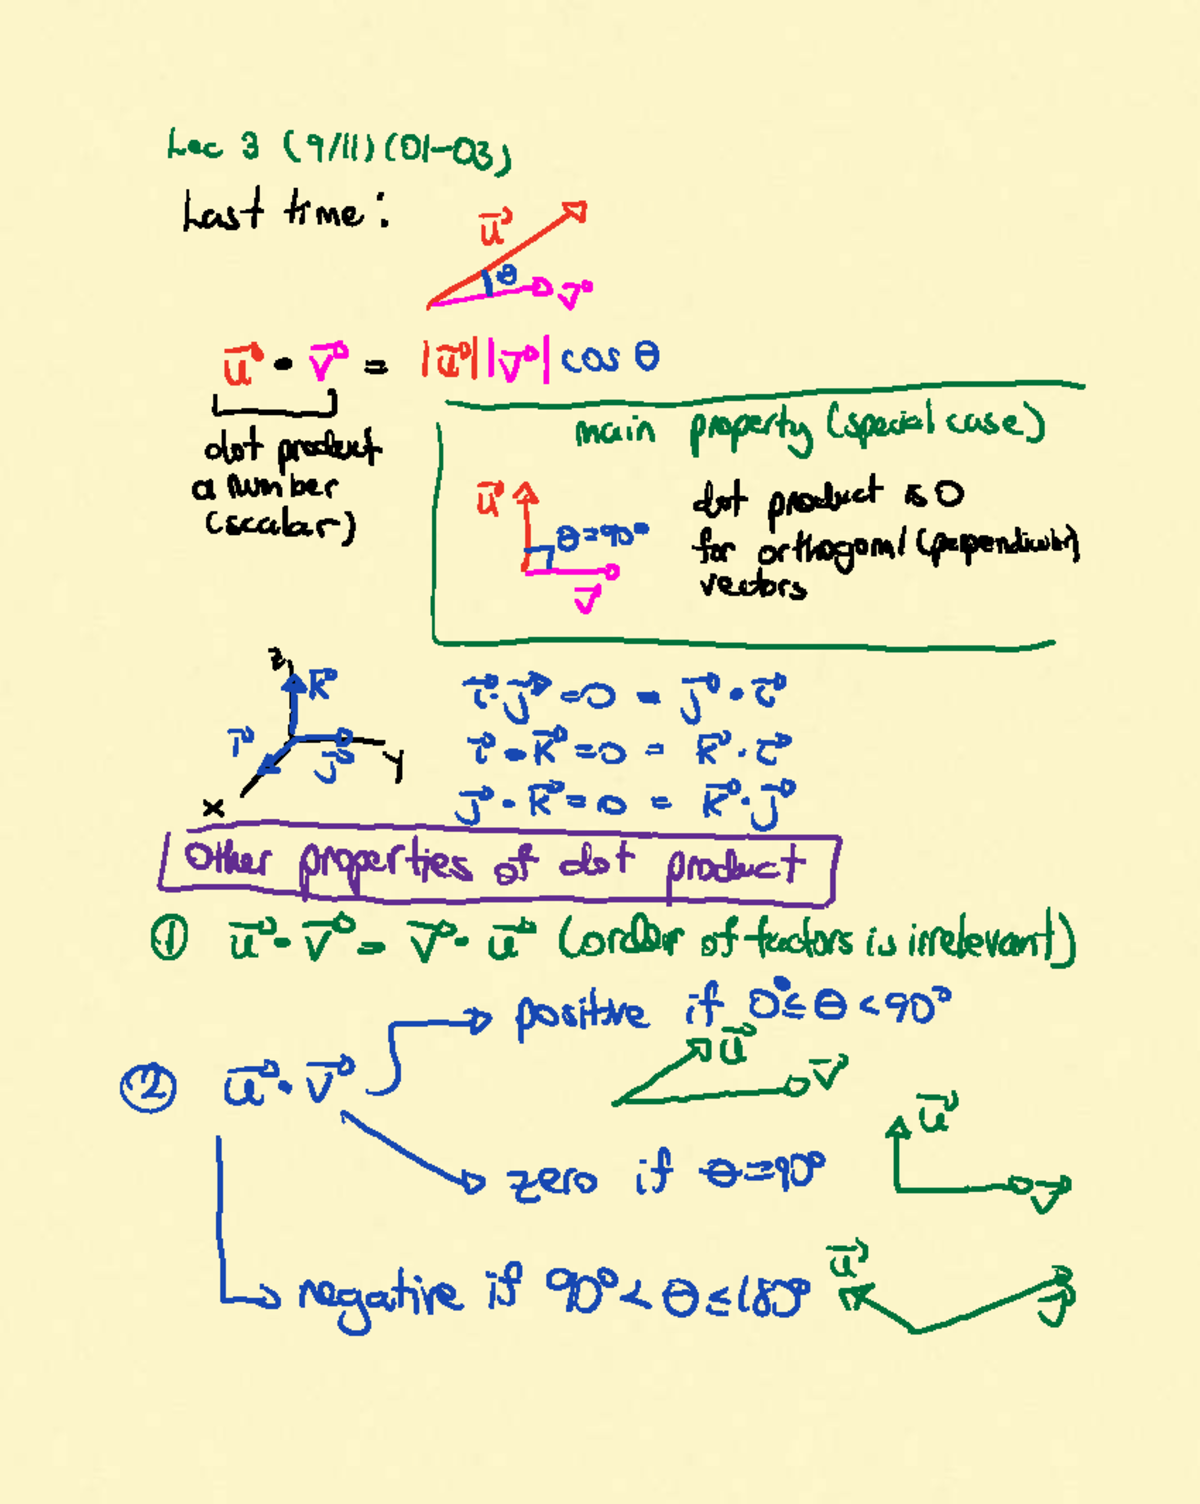 Lec 3 (9/11) (01-03)
Last time:
u⃗
θ
v⃗
u⃗ • v⃗ = |u⃗| |v⃗| cos θ
dot product
a number
(scalar)
main property (special case)
u⃗
θ=90°
v⃗
dot product is 0
for orthogonal (perpendicular)
vectors
z
k⃗
i⃗
j⃗
y
x
i⃗ · j⃗ = 0 = j⃗ • i⃗
i⃗ • k⃗ = 0 = k⃗ · i⃗
j⃗ · k⃗ = 0 = k⃗ · j⃗
Other properties of dot product
① u⃗ • v⃗ = v⃗ • u⃗ (order of factors is irrelevant)
positive if 0° ≤ θ < 90°
u⃗
v⃗
② u⃗ • v⃗
u⃗
zero if θ = 90°
v⃗
u⃗
negative if 90° < θ ≤ 180°
v⃗